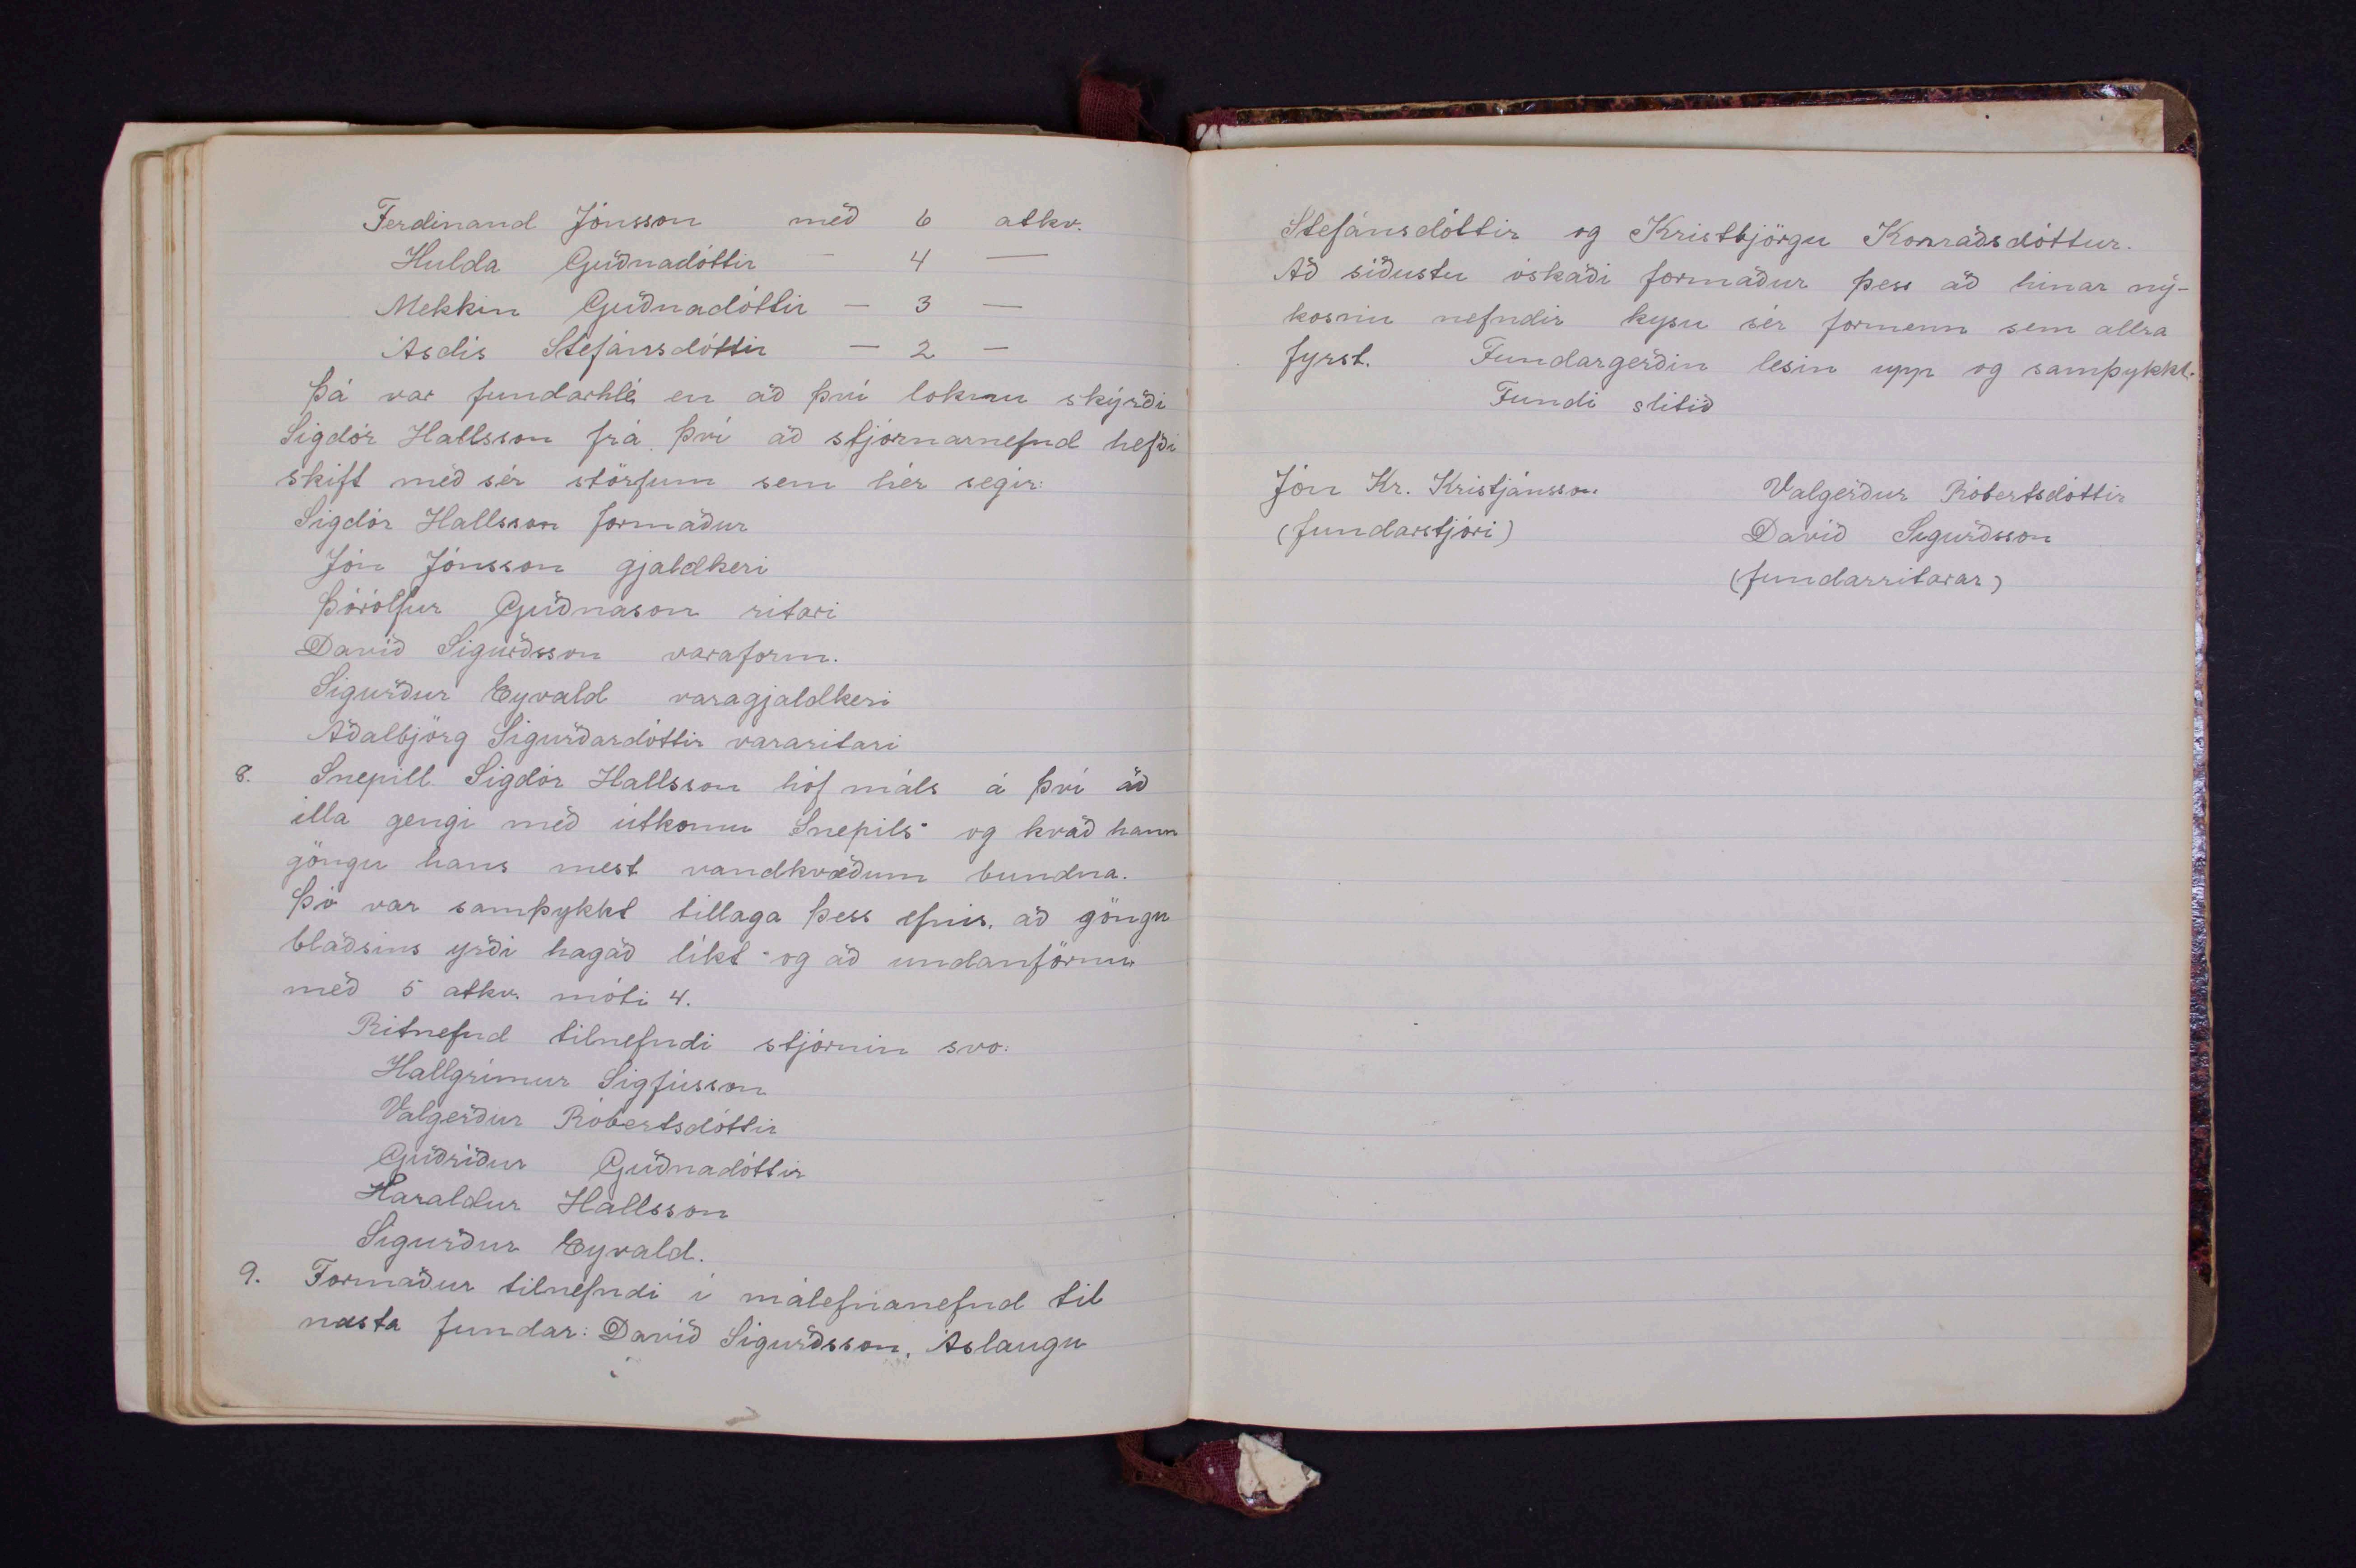 Ferdinand Jónsson með 6 atkv.
Hulda Guðnadóttir — 4 —
Mekkin Guðnadóttir — 3 —
Ásdís Stefánsdóttir — 2 —
Þá var fundarhlé en að því loknu skýrði
Sigdór Hallsson frá því að stjórnarnefnd hefði
skift með sér störfum sem hér segir:
Sigdór Hallsson formaður
Jón Jónsson gjaldkeri
Þórólfur Guðnason ritari
Davíð Sigurðsson varaform.
Sigurður Eyvald varagjaldkeri
Aðalbjörg Sigurðardóttir vararitari
8. Snepill. Sigdór Hallsson hóf máls á því að
illa gengi með útkomu Snepils og kvað hann
göngu hans mest vandkvæðum bundna.
Þó var samþykkt tillaga þess efnis, að göngu
blaðsins yrði hagað líkt og að undanförnu
með 5 atkv. móti 4.
Ritnefnd tilnefndi stjórnin svo:
Hallgrímur Sigfússon
Valgerður Róbertsdóttir
Guðríður Guðnadóttir
Haraldur Hallsson
Sigurður Eyvald.
9. Formaður tilnefndi í málefnanefnd til
næsta fundar: Davíð Sigurðsson, Áslaugu
Stefánsdóttir og Kristbjörgu Konráðsdóttur.
Að síðustu óskaði formaður þess að hinar ný-
kosnu nefndir kysu sér formenn sem allra
fyrst. Fundargerðin lesin upp og samþykkt.
Fundi slitið
Jón Kr. Kristjánsson Valgerður Róbertsdóttir
(fundarstjóri) Davíð Sigurðsson
(fundarritarar)